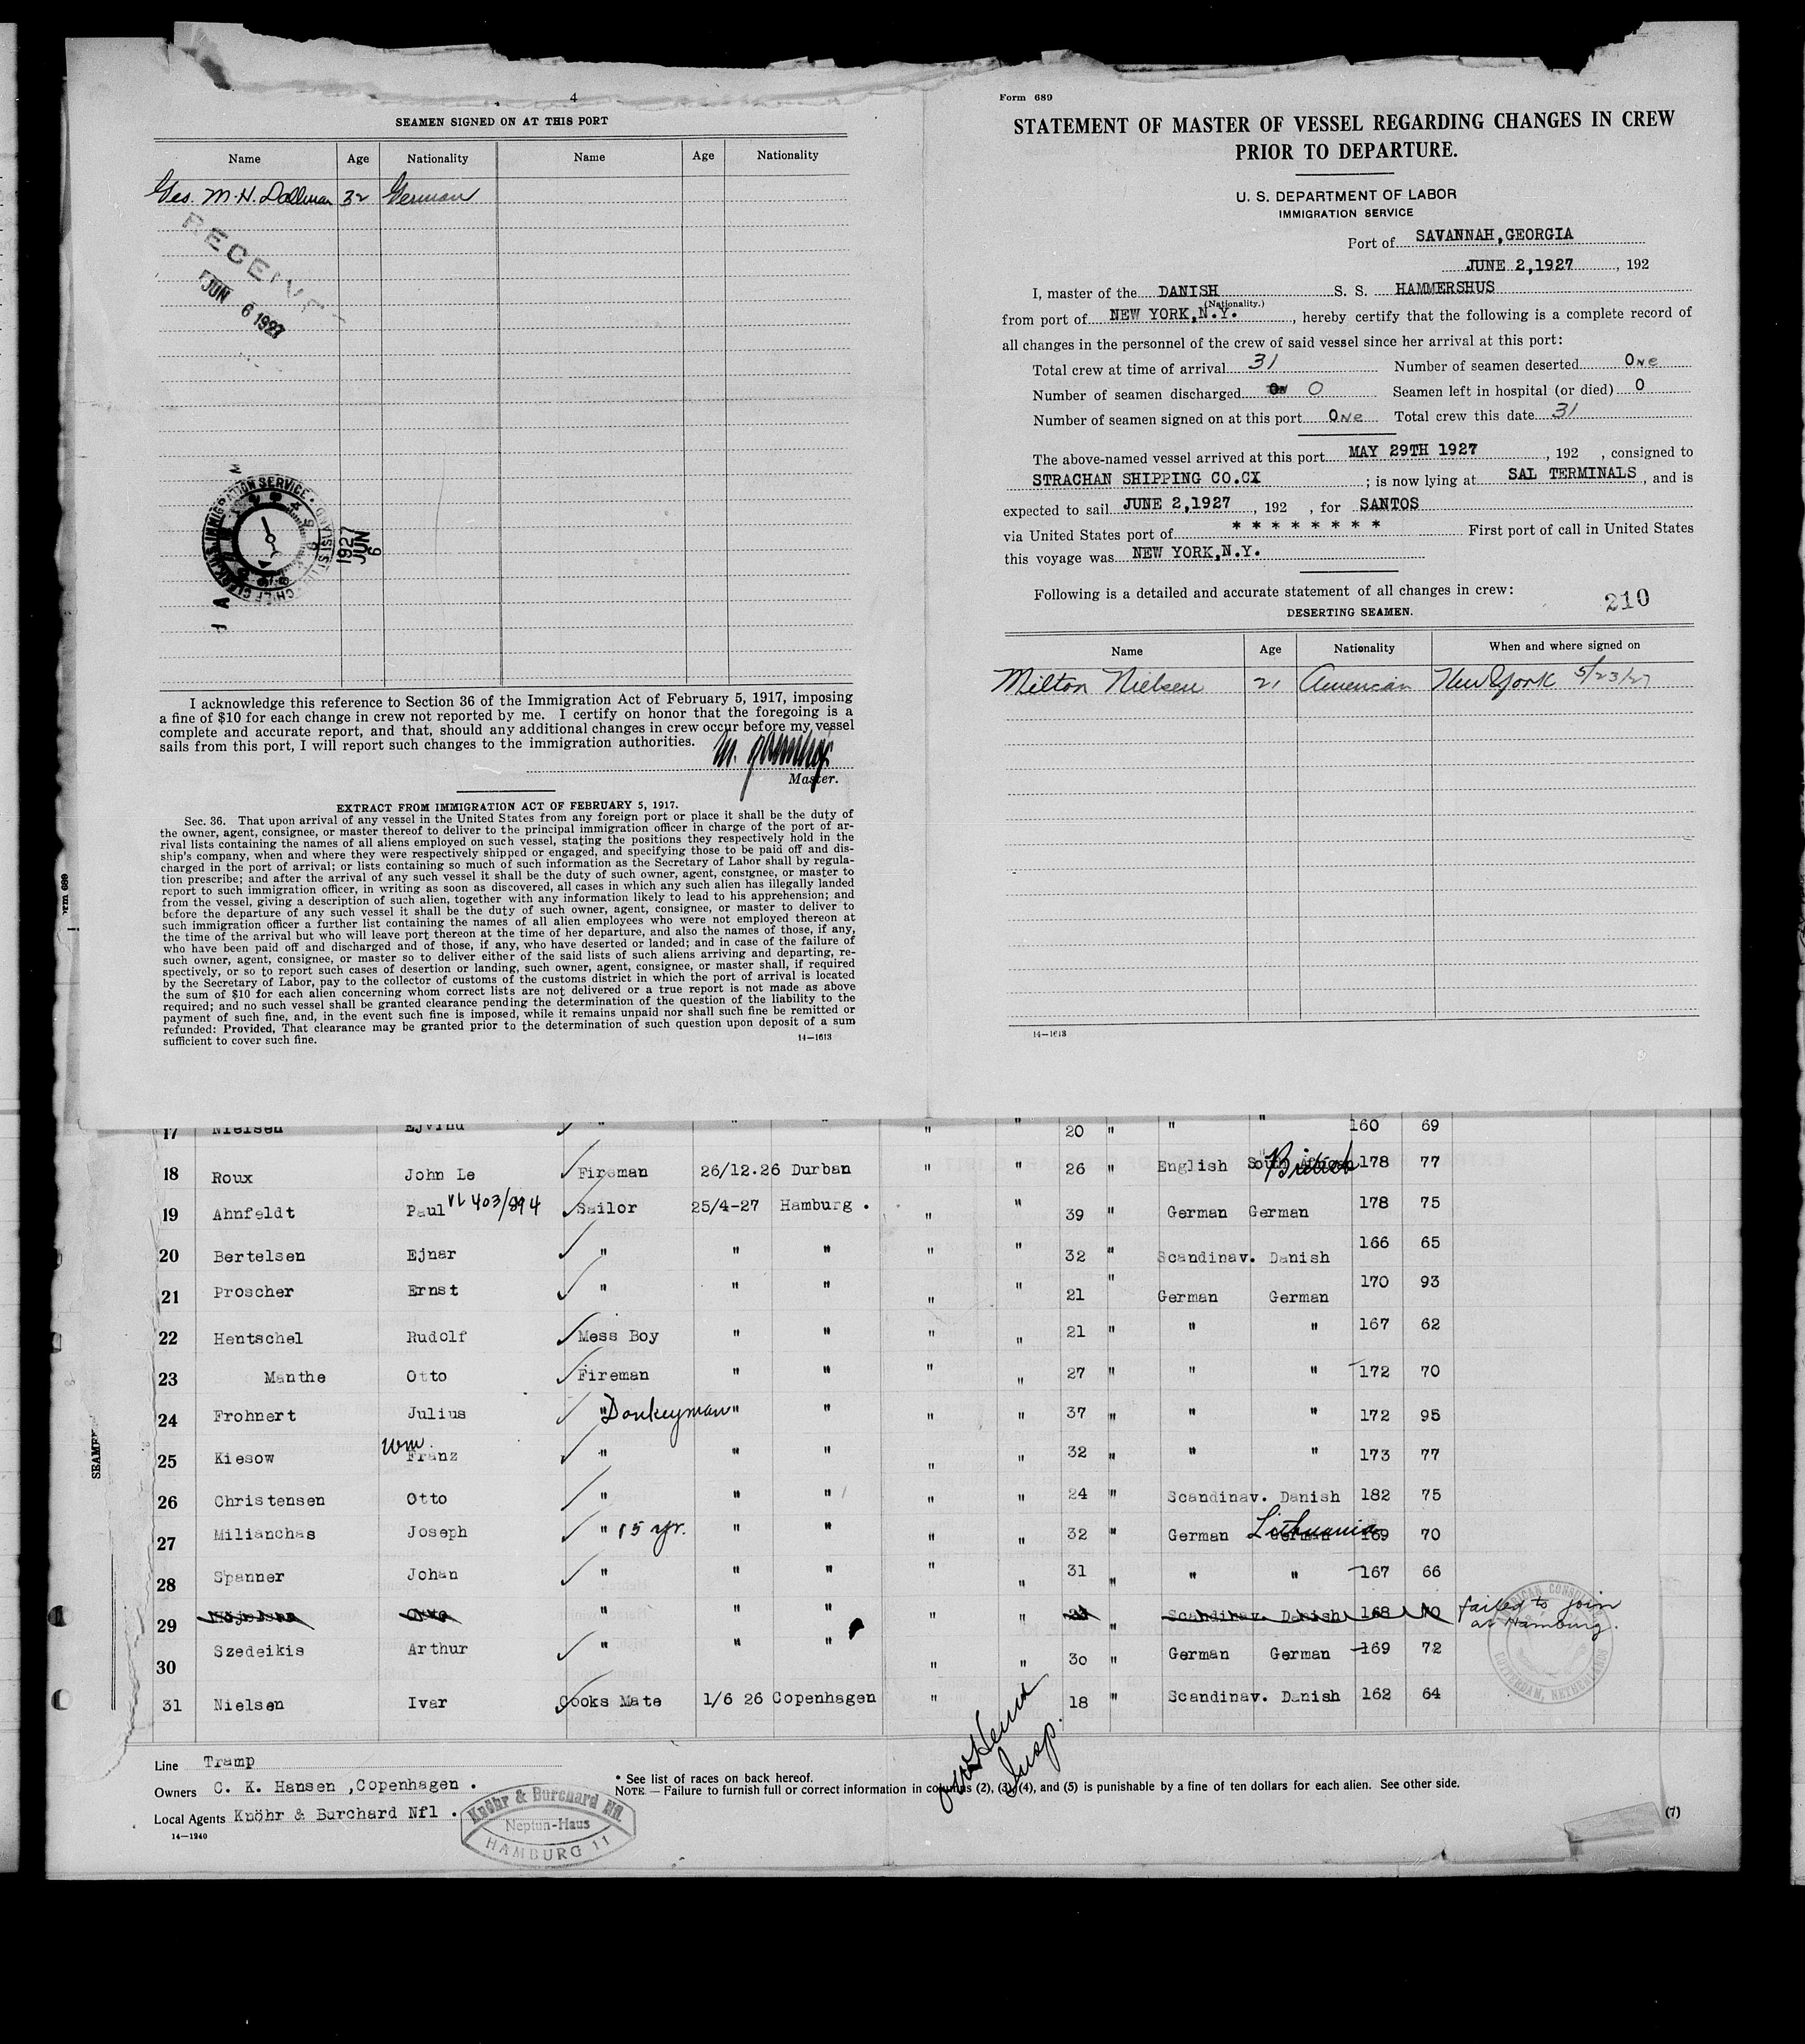 4
SEAMEN SIGNED ON AT THIS PORT
Name Age Nationality Name Age Nationality
Geo. M. H. Dollman 32 German
RECEIVE
JUN 6 1927
IMMIGRATION SERVICE
1927 JUN 6
I acknowledge this reference to Section 36 of the Immigration Act of February 5, 1917, imposing
a fine of $10 for each change in crew not reported by me. I certify on honor that the foregoing is a
complete and accurate report, and that, should any additional changes in crew occur before my vessel
sails from this port, I will report such changes to the immigration authorities.
Master.
EXTRACT FROM IMMIGRATION ACT OF FEBRUARY 5, 1917.
Sec. 36. That upon arrival of any vessel in the United States from any foreign port or place it shall be the duty of
the owner, agent, consignee, or master thereof to deliver to the principal immigration officer in charge of the port of ar-
rival lists containing the names of all aliens employed on such vessel, stating the positions they respectively hold in the
ship's company, when and where they were respectively shipped or engaged, and specifying those to be paid off and dis-
charged in the port of arrival; or lists containing so much of such information as the Secretary of Labor shall by regula-
tion prescribe; and after the arrival of any such vessel it shall be the duty of such owner, agent, consignee, or master to
report to such immigration officer, in writing as soon as discovered, all cases in which any such alien has illegally landed
from the vessel, giving a description of such alien, together with any information likely to lead to his apprehension; and
before the departure of any such vessel it shall be the duty of such owner, agent, consignee, or master to deliver to
such immigration officer a further list containing the names of all alien employees who were not employed thereon at
the time of the arrival but who will leave port thereon at the time of her departure, and also the names of those, if any,
who have been paid off and discharged and of those, if any, who have deserted or landed; and in case of the failure of
such owner, agent, consignee, or master so to deliver either of the said lists of such aliens arriving and departing, re-
spectively, or so to report such cases of desertion or landing, such owner, agent, consignee, or master shall, if required
by the Secretary of Labor, pay to the collector of customs of the customs district in which the port of arrival is located
the sum of $10 for each alien concerning whom correct lists are not delivered or a true report is not made as above
required; and no such vessel shall be granted clearance pending the determination of the question of the liability to the
payment of such fine, and, in the event such fine is imposed, while it remains unpaid nor shall such fine be remitted or
refunded: Provided, That clearance may be granted prior to the determination of such question upon deposit of a sum
sufficient to cover such fine.
14—1613
Form 689
STATEMENT OF MASTER OF VESSEL REGARDING CHANGES IN CREW
PRIOR TO DEPARTURE.
U. S. DEPARTMENT OF LABOR
IMMIGRATION SERVICE
Port of SAVANNAH,GEORGIA
JUNE 2,1927 , 192
I, master of the DANISH S. S. HAMMERSHUS
(Nationality.)
from port of NEW YORK,N.Y. , hereby certify that the following is a complete record of
all changes in the personnel of the crew of said vessel since her arrival at this port:
Total crew at time of arrival 31 Number of seamen deserted One
Number of seamen discharged 0 Seamen left in hospital (or died) 0
Number of seamen signed on at this port One Total crew this date 31
The above-named vessel arrived at this port MAY 29TH 1927 , 192 , consigned to
STRACHAN SHIPPING CO.CX ; is now lying at SAL TERMINALS , and is
expected to sail JUNE 2,1927 , 192 , for SANTOS
via United States port of * * * * * * * * First port of call in United States
this voyage was NEW YORK,N.Y.
Following is a detailed and accurate statement of all changes in crew:
210
DESERTING SEAMEN.
Name Age Nationality When and where signed on
Milton Nielsen 21 American New York 5/23/27
14—1613
17 Nielsen Ejvind " " " " " 20 " " " 160 69
18 Roux John Le Fireman 26/12.26 Durban " " 26 " English South African British 178 77
19 Ahnfeldt Paul VL 403/894 Sailor 25/4-27 Hamburg . " " 39 " German German 178 75
20 Bertelsen Ejnar " " " " " 32 " Scandinav. Danish 166 65
21 Proscher Ernst " " " " " 21 " German German 170 93
22 Hentschel Rudolf Mess Boy " " " " 21 " " " 167 62
23 Manthe Otto Fireman " " " " 27 " " " 172 70
24 Frohnert Julius " Donkeyman " " " " 37 " " " 172 95
25 Kiesow Wm Franz " " " " " 32 " " " 173 77
26 Christensen Otto " " " " " 24 " Scandinav. Danish 182 75
27 Milianchas Joseph " 15 yr. " " " " 32 " German German Lithuania 169 70
28 Spanner Johan " " " " " 31 " " " 167 66
29 Otto " " " " " " Scandinav. Danish 168 70 failed to join
at Hamburg.
30 Szedeikis Arthur " " " " " 30 " German German 169 72
31 Nielsen Ivar Cooks Mate 1/6 26 Copenhagen " " 18 " Scandinav. Danish 162 64
AMERICAN CONSULAR
ROTTERDAM, NETHERLANDS
Insp.
Line Tramp
Owners C. K. Hansen ,Copenhagen .
Local Agents Knöhr & Burchard Nfl .
14—1240
* See list of races on back hereof.
NOTE.—Failure to furnish full or correct information in columns (2), (3), (4), and (5) is punishable by a fine of ten dollars for each alien. See other side.
Knöhr & Burchard Nfl.
Neptun-Haus
HAMBURG 11
(7)